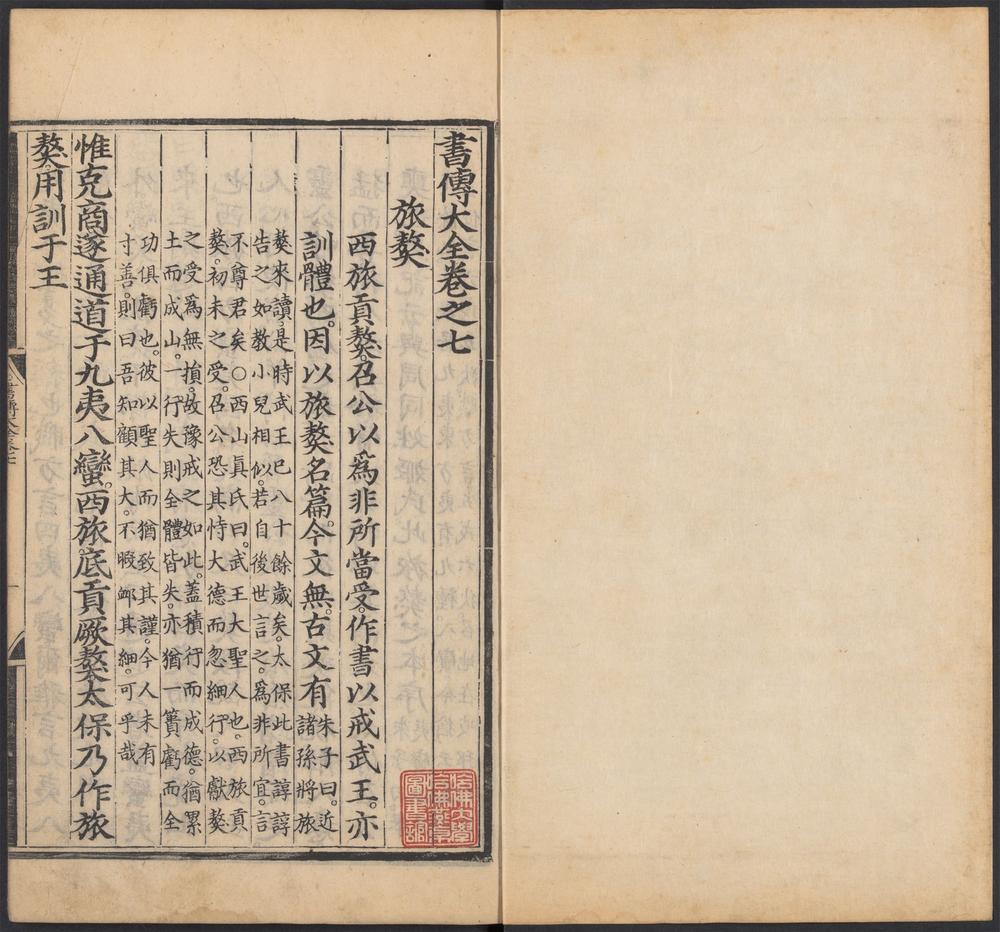 書傳大全卷之七
旅獒
西旅貢獒。召公以爲非所當受。作書以戒武王。亦
訓體也。因以旅獒名篇。今文無。古文有
朱子曰。近
諸孫將旅
獒來讀。是時武王已八十餘歲矣。太保此書諄諄
告之如教小兒相似。若自後世言之。爲非所宜。言
不尊君矣○西山眞氏曰。武王大聖人也。西旅貢
獒。初未之受。召公恐其恃大德而忽細行。以獻獒
之受爲無損。故豫戒之如此。蓋積行而成德。猶累
土而成山。一行失則全體皆失。亦猶一簣虧而全
功俱虧也。彼以聖人而猶致其謹。今人未有
寸善。則曰吾知顧其大。不暇䘏其細。可乎哉
惟克商遂通道于九夷八蠻。西旅底貢厥獒。太保乃作旅
獒。用訓于王
哈佛大學
哈佛燕京
圖書館